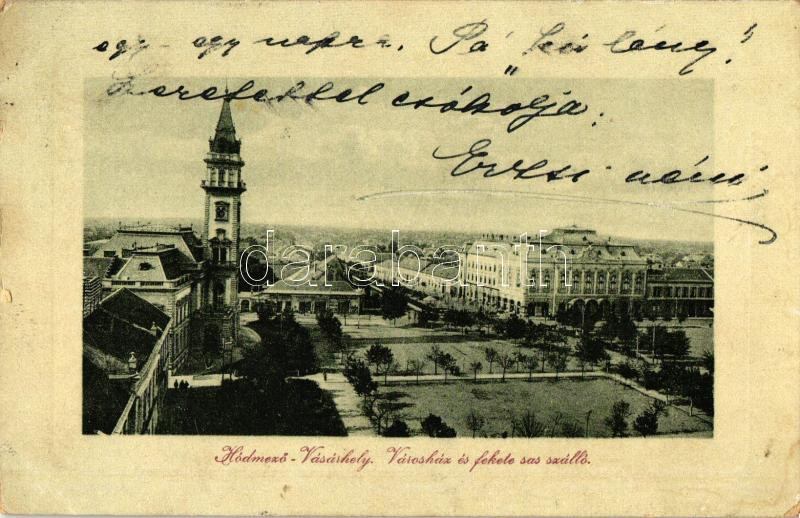 egy-egy napra. Pá kis lány!
Szeretettel csókolja:
Erzsi néni
darabanth
Hódmező-Vásárhely. Városház és fekete sas szálló.